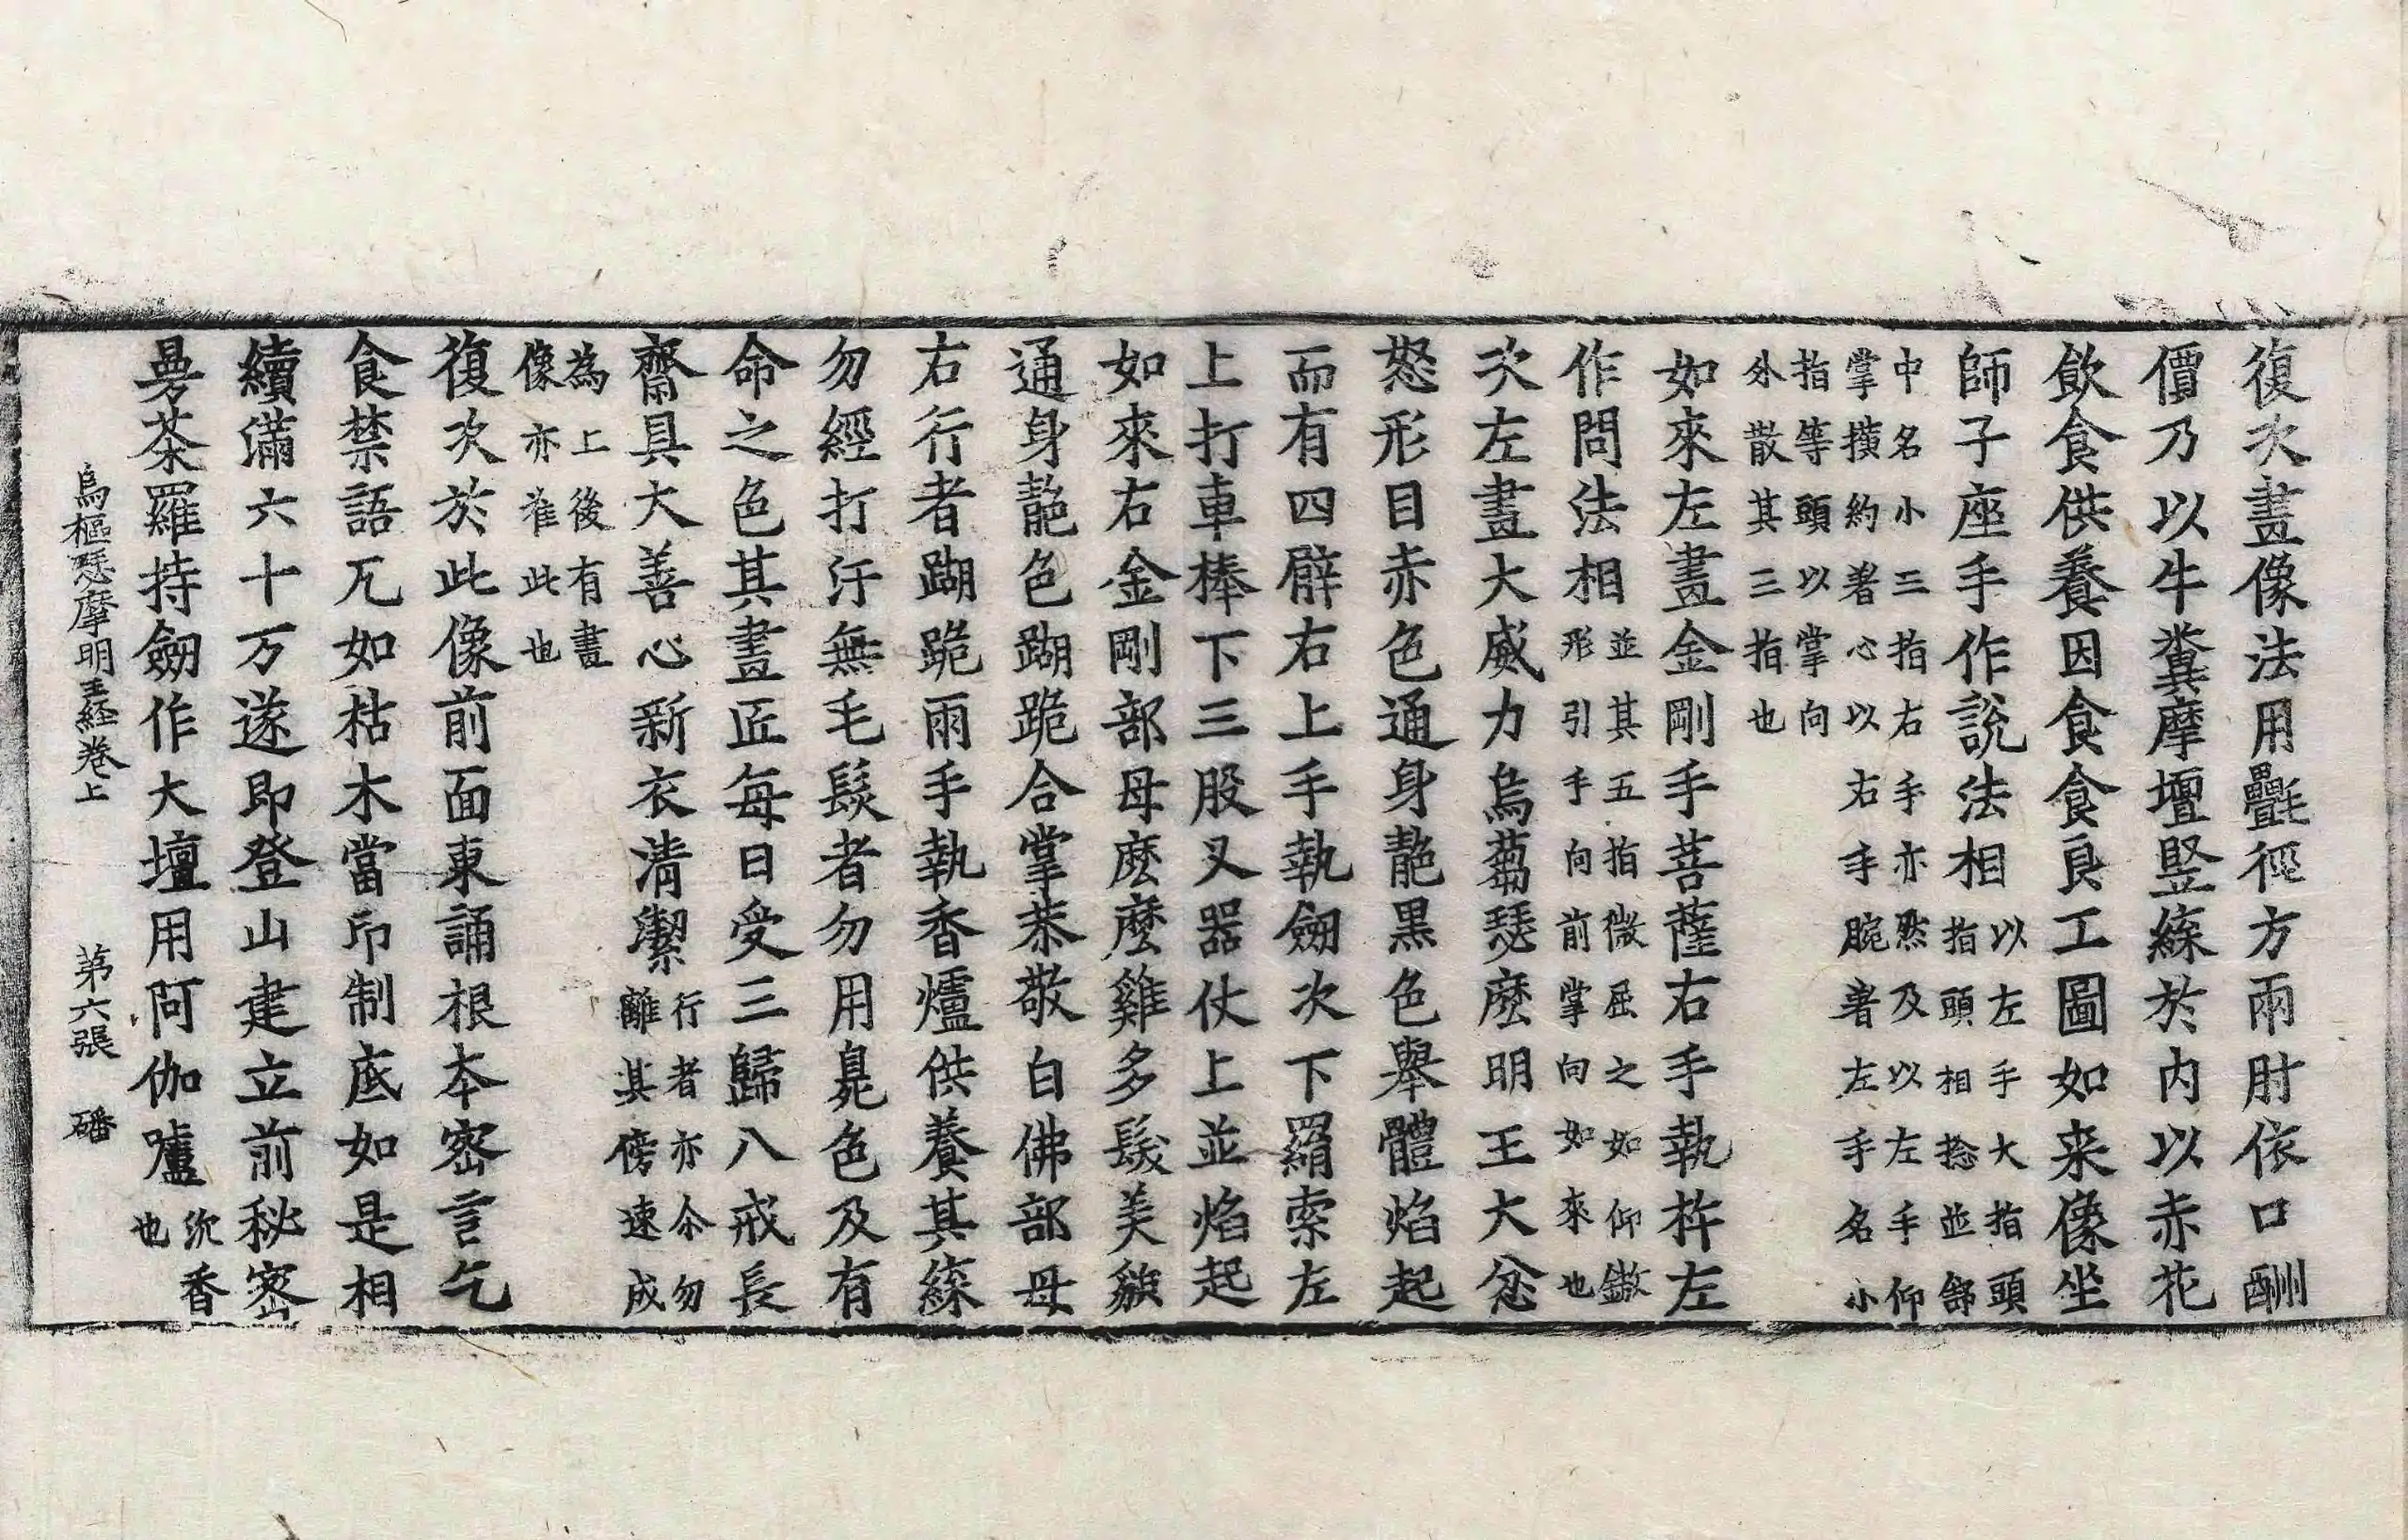 復次畫像法用㲲徑方兩肘依口酬
價乃以牛糞摩壇竪㯶於內以赤花
飲食供養因食食食良工圖如来像坐
師子座手作說法相以左手大指頭指頭相捻並舒
中名小三指右手亦然及以左手仰掌横約著心以右手腕著左手名小
指等頭以掌向外散其三指也
如來左畫金剛手菩薩右手執杵左
作問法相並其五指微屈之如仰皷形引手向前掌向如來也
次左畫大威力烏蒭瑟麼明王大忿
怒形目赤色通身靘黑色舉體焰起
而有四臂右上手執劒次下羂索左
上打車棒下三股叉器仗上並焰起
如來右金剛部母麼麼雞多髮美貌
通身靘色䠒跪合掌恭敬白佛部母
右行者䠒跪兩手執香爐供養其㯶
勿經打汙無毛髮者勿用皃色及有
命之色其畫匠每日受三歸八戒長
齋具大善心新衣清潔行者亦尒勿離其傍速成
為上後有畫像亦准此也
復次於此像前面東誦根本密言乞
食禁語兀如枯木當印制底如是相
續滿六十万遂即登山建立前秘密
曼茶羅持劒作大壇用阿伽嚧沉香也
烏樞瑟摩明王経卷上　第六張　磻